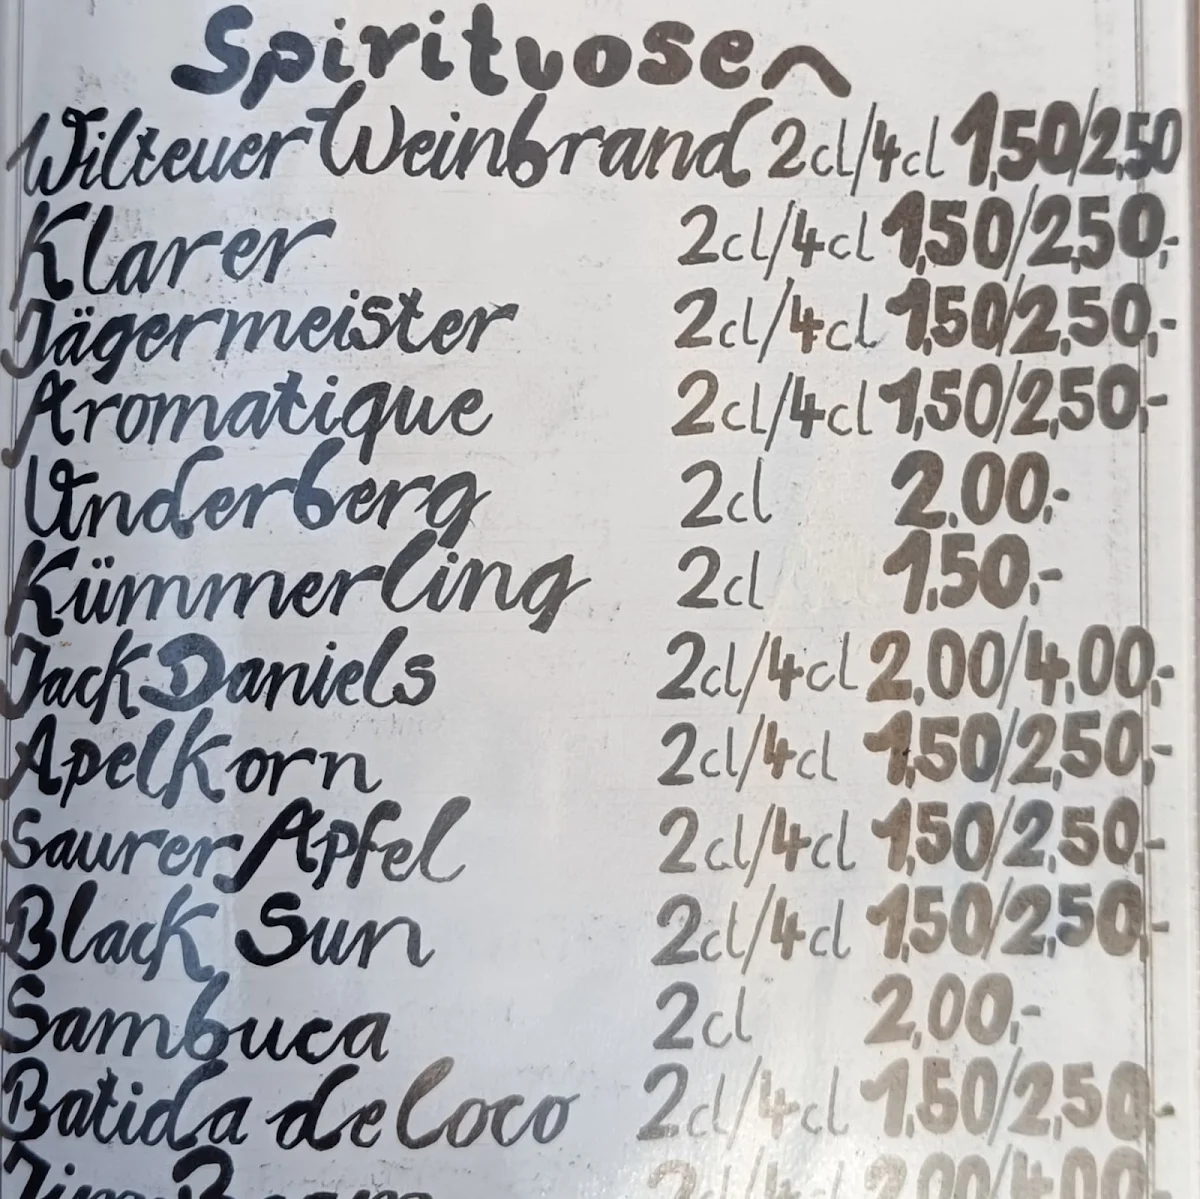 Spirituosen
Wilteuer Weinbrand 2cl/4cl 1,50/2,50
Klarer 2cl/4cl 1,50/2,50,-
Jägermeister 2cl/4cl 1,50/2,50,-
Aromatique 2cl/4cl 1,50/2,50,-
Underberg 2cl 2.00,-
Kümmerling 2cl 1,50,-
Jack Daniels 2cl/4cl 2,00/4,00,-
Apelkorn 2cl/4cl 1,50/2,50,-
Saurer Apfel 2cl/4cl 1,50/2,50,-
Black Sun 2cl/4cl 1,50/2,50,-
Sambuca 2cl 2,00,-
Batida de Coco 2cl/4cl 1,50/2,50,-
Jim Beam 2cl/4cl 2,00/4,00